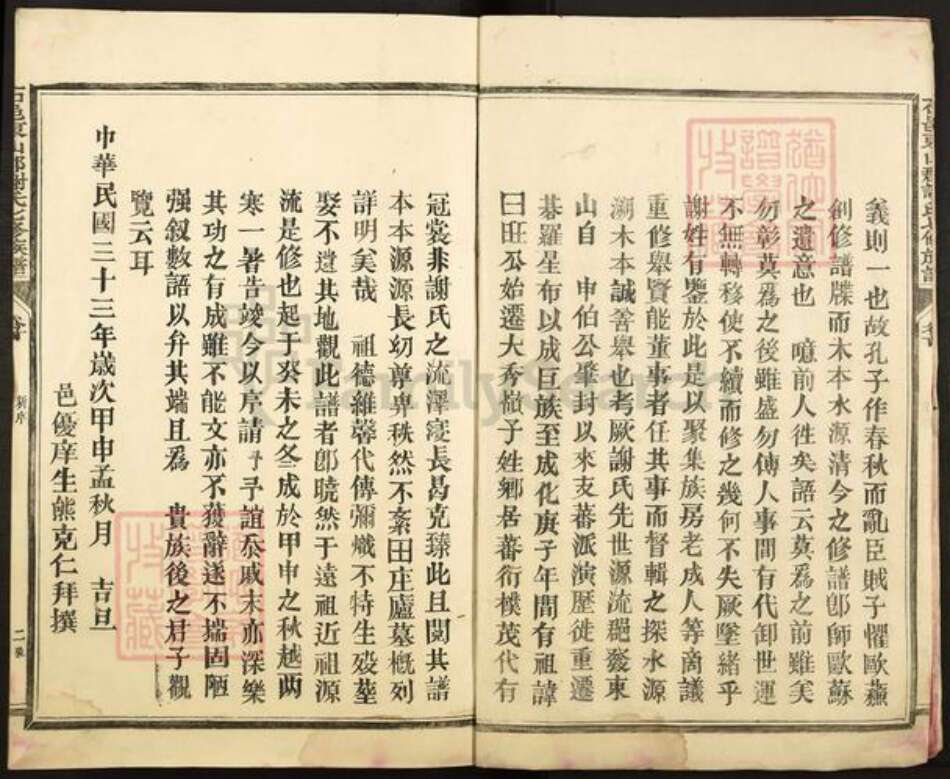 義則一也故孔子作春秋而亂臣賊子懼歐蘇
創修譜牒而木本水源清今之修譜卽師歐蘇
之遺意也 噫前人徃矣語云莫爲之前雖美
勿彰莫爲之後雖盛勿傳人事間有代卸世運
不無轉移使不續而修之幾何不失厥墜緒乎
謝姓有鑒於此是以聚集族房老成人等啇議
重修舉賢能董事者任其事而督輯之探水源
溯木本誠善舉也考厥謝氏先世源流肇發東
山自 申伯公肇封以來支蕃派演歷徙重遷
棊羅星布以成巨族至成化庚子年間有祖諱
曰旺公始遷大秀嶺子姓鄉居蕃衍樸茂代有
冠裳非謝氏之流澤寖長曷克臻此且閱其譜
本本源源長幼尊卑秩然不紊田庄廬墓概列
詳明美哉 祖德維馨代傳彌熾不特生歿塟
娶不遺其地觀此譜者卽曉然于遠祖近祖源
流是修也起于癸未之冬成於甲申之秋越两
寒一暑告竣今以序請予予誼忝戚末亦深樂
其功之有成雖不能文亦不獲辭遂不揣固陋
强叙數語以弁其端且爲 貴族後之君子觀
覽云耳
中華民國三十三年歲次甲申孟秋月 吉旦
邑優庠生熊克仁拜撰
新序
FamilySearch